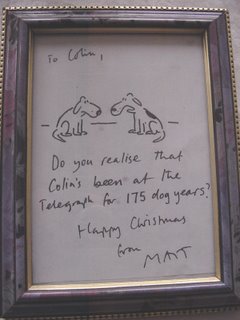 To Colin,
Do you realise that
Colin's been at the
Telegraph for 175 dog years?
Happy Christmas
from
MATT